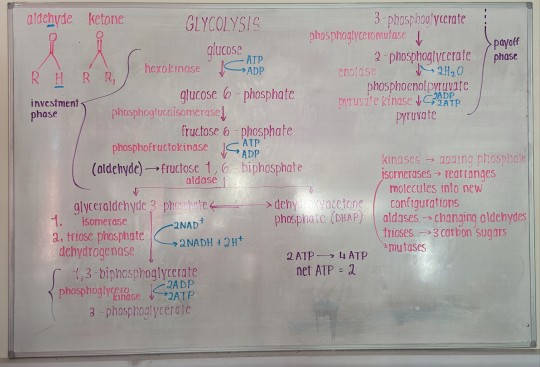 aldehyde ketone
O O
R H R R₁
GLYCOLYSIS
glucose
hexokinase
ATP
ADP
glucose 6-phosphate
phosphoglucoisomerase
fructose 6-phosphate
phosphofructokinase
ATP
ADP
(aldehyde) → fructose 1,6-biphosphate
aldase
investment
phase
glyceraldehyde 3-phosphate
phosphate (DHAP)
1. isomerase
2. triose phosphate
dehydrogenase
2NAD⁺
2NADH + 2H⁺
1,3-biphosphoglycerate
phosphoglycero
kinase
2ADP
2ATP
3-phosphoglycerate
2 ATP → 4 ATP
net ATP = 2
3-phosphoglycerate
phosphoglyceromutase
2-phosphoglycerate
enolase
2H₂O
phosphoenolpyruvate
pyruvate kinase
2ADP
2ATP
pyruvate
payoff
phase
kinases → adding phosphate
isomerases → rearranges
molecules into new
configurations
aldases → changing aldehydes
trioses → 3 carbon sugars
mutases